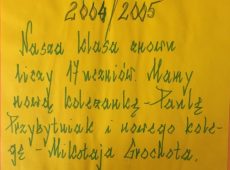 2004/2005
Nasza klasa znowu
liczy 17 uczniów. Mamy
nową koleżankę - Paulę
Przybytniak i nowego kole-
gę - Mikołaja Grochota.